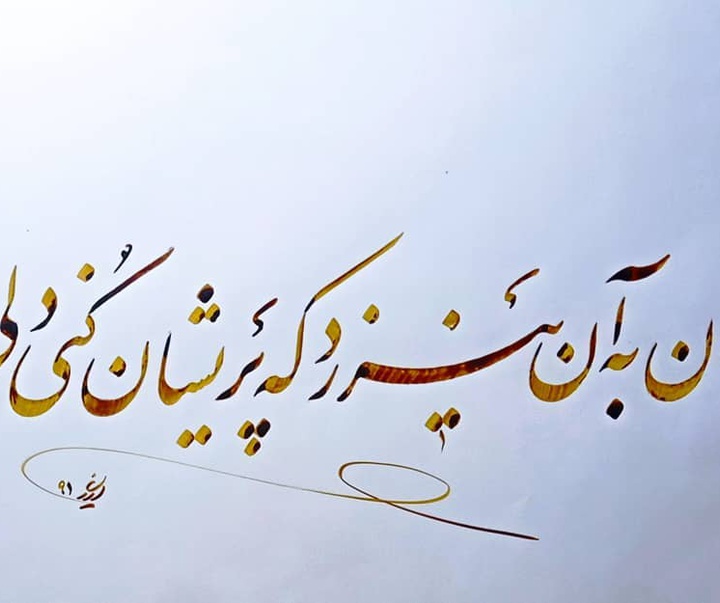 ن به آن نیرزد که پریشان کُنی دل
۹۱